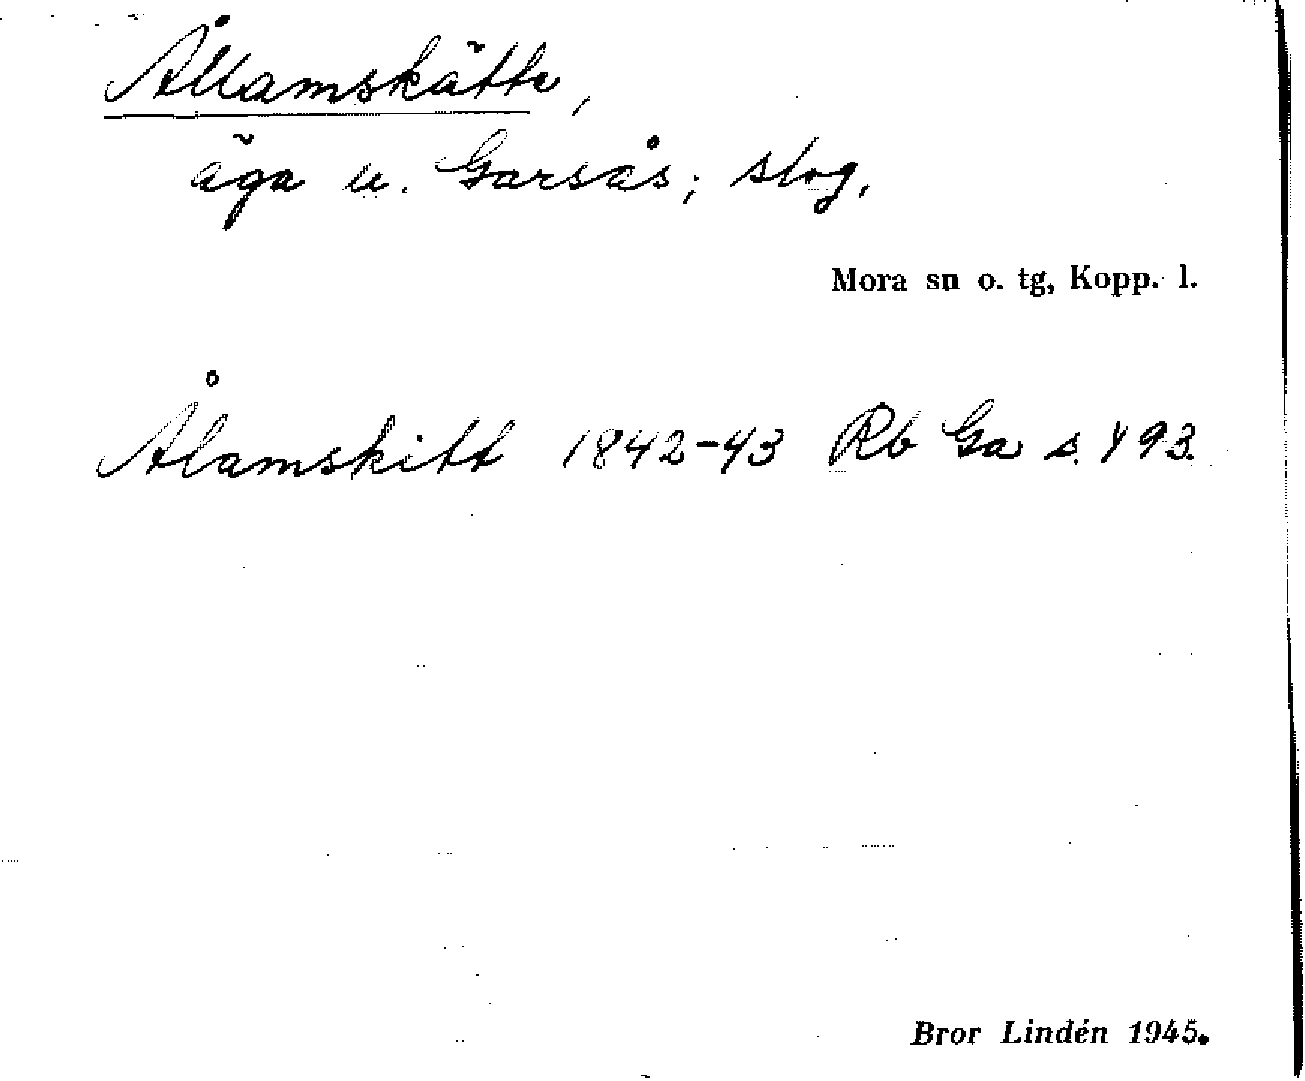 Ållamskätte,
äga u. Garsås; slog.
Mora sn o. tg, Kopp. l.
Ålamskitt 1842-43 Rb Ga s. 493.
Bror Lindén 1945.